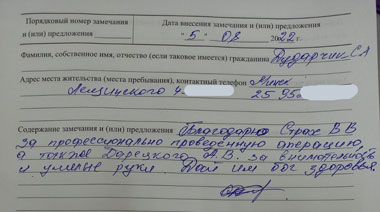 Порядковый номер замечания
и (или) предложения
Дата внесения замечания и (или) предложения
"5" 08 2022 г.
Фамилия, собственное имя, отчество (если таковое имеется) гражданина Дударчик СЛ
Адрес места жительства (места пребывания), контактный телефон Минск
Лещинского 4 25 95
Содержание замечания и (или) предложения Благодарю Страх В В
за профессионально проведенную операцию,
а также Дорецкого А.В. за внимательность
и умелые руки. Дай им бог здоровья